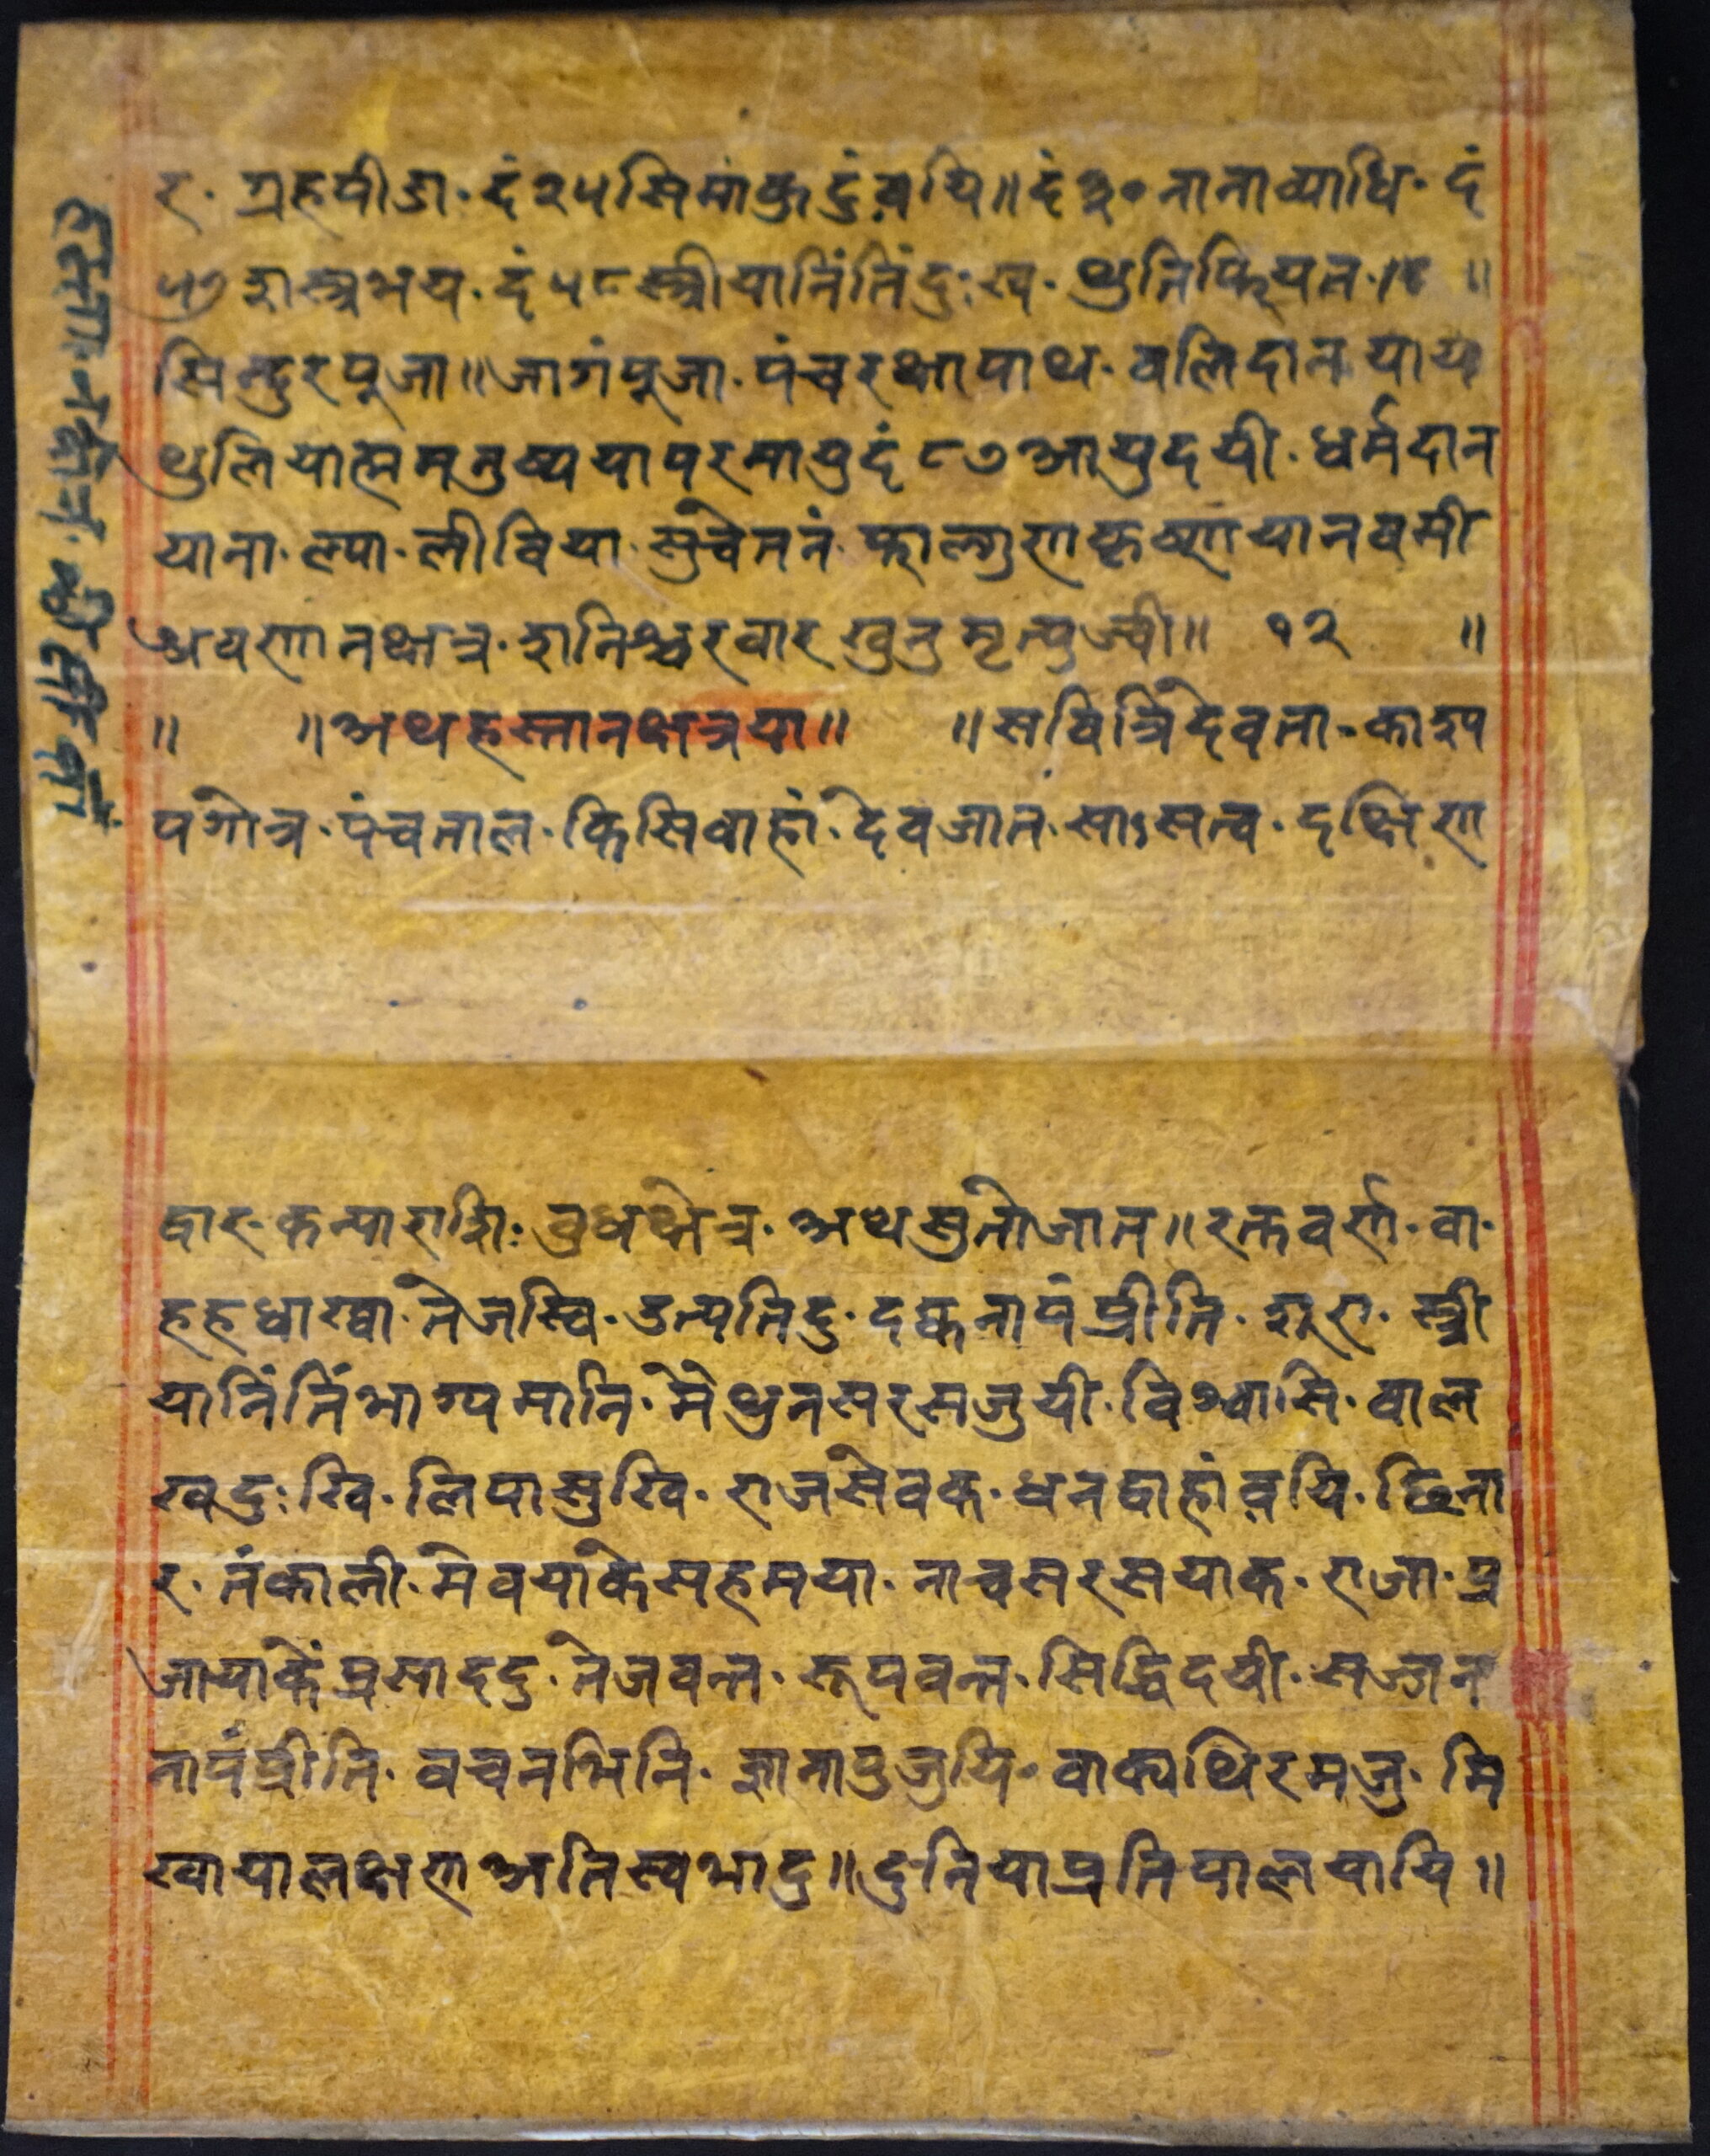 र · ग्रहपीडा · दं २५ सिमांकुटुंवयि ॥ दं ३० नानाव्याधि · दं
५७ शस्त्रभय · दं ५८ स्त्रीयानिंतिंदुःख · थुतिफियत · ॥ ॥
सिन्दुरपूजा ॥ जागंपूजा · पंचरक्षापाथ · वलिदान यायं
थुलियात्मनुष्ययापरमायुदं ८७ आयुदयी · धर्मदान
याना · ल्पा · लीविया · सुचेतनं · फाल्गुणकृष्णयानवमी
श्रवणनक्षत्र · शनिश्चरवार खुनुमृत्युज्वी ॥ १२ ॥
॥ ॥ अथहस्तानक्षत्रया ॥ ॥ सवित्रिदेवता · काश्प
पगोत्र · पंचताल · किसिवाहां · देवजात · साऽसत्व · दक्षिण
द्वार · कन्याराशिः वुधक्षेत्र · अथशुतोजात ॥ रक्तवर्ण · वा ·
हहधाख्वा · तेजस्वि · उत्पतिदु · दक्वनापंप्रीति · शूरा · स्त्री
यानिंतिंभाग्यमानि · मैथुनसरसजुयी · विश्वासि · वाल
खदुःखि · लिपासुखि · राजसेवक · धनद्वाहांव़यि · छिना
र · तंकाली · मेवयाकेसहमया · नाचसरसयाक · राजा · प्र
जायाकेंप्रसाददु · तेजवन्त · रूपवन्त · सिद्धिदयी · सज्जन
नापंप्रीति · वचनभिनि · ज्ञातापुजुयि · वाक्यथिरमजु · मि
खायालक्षण अतिस्वभादु ॥ दुनियाप्रतिपालयायि ॥